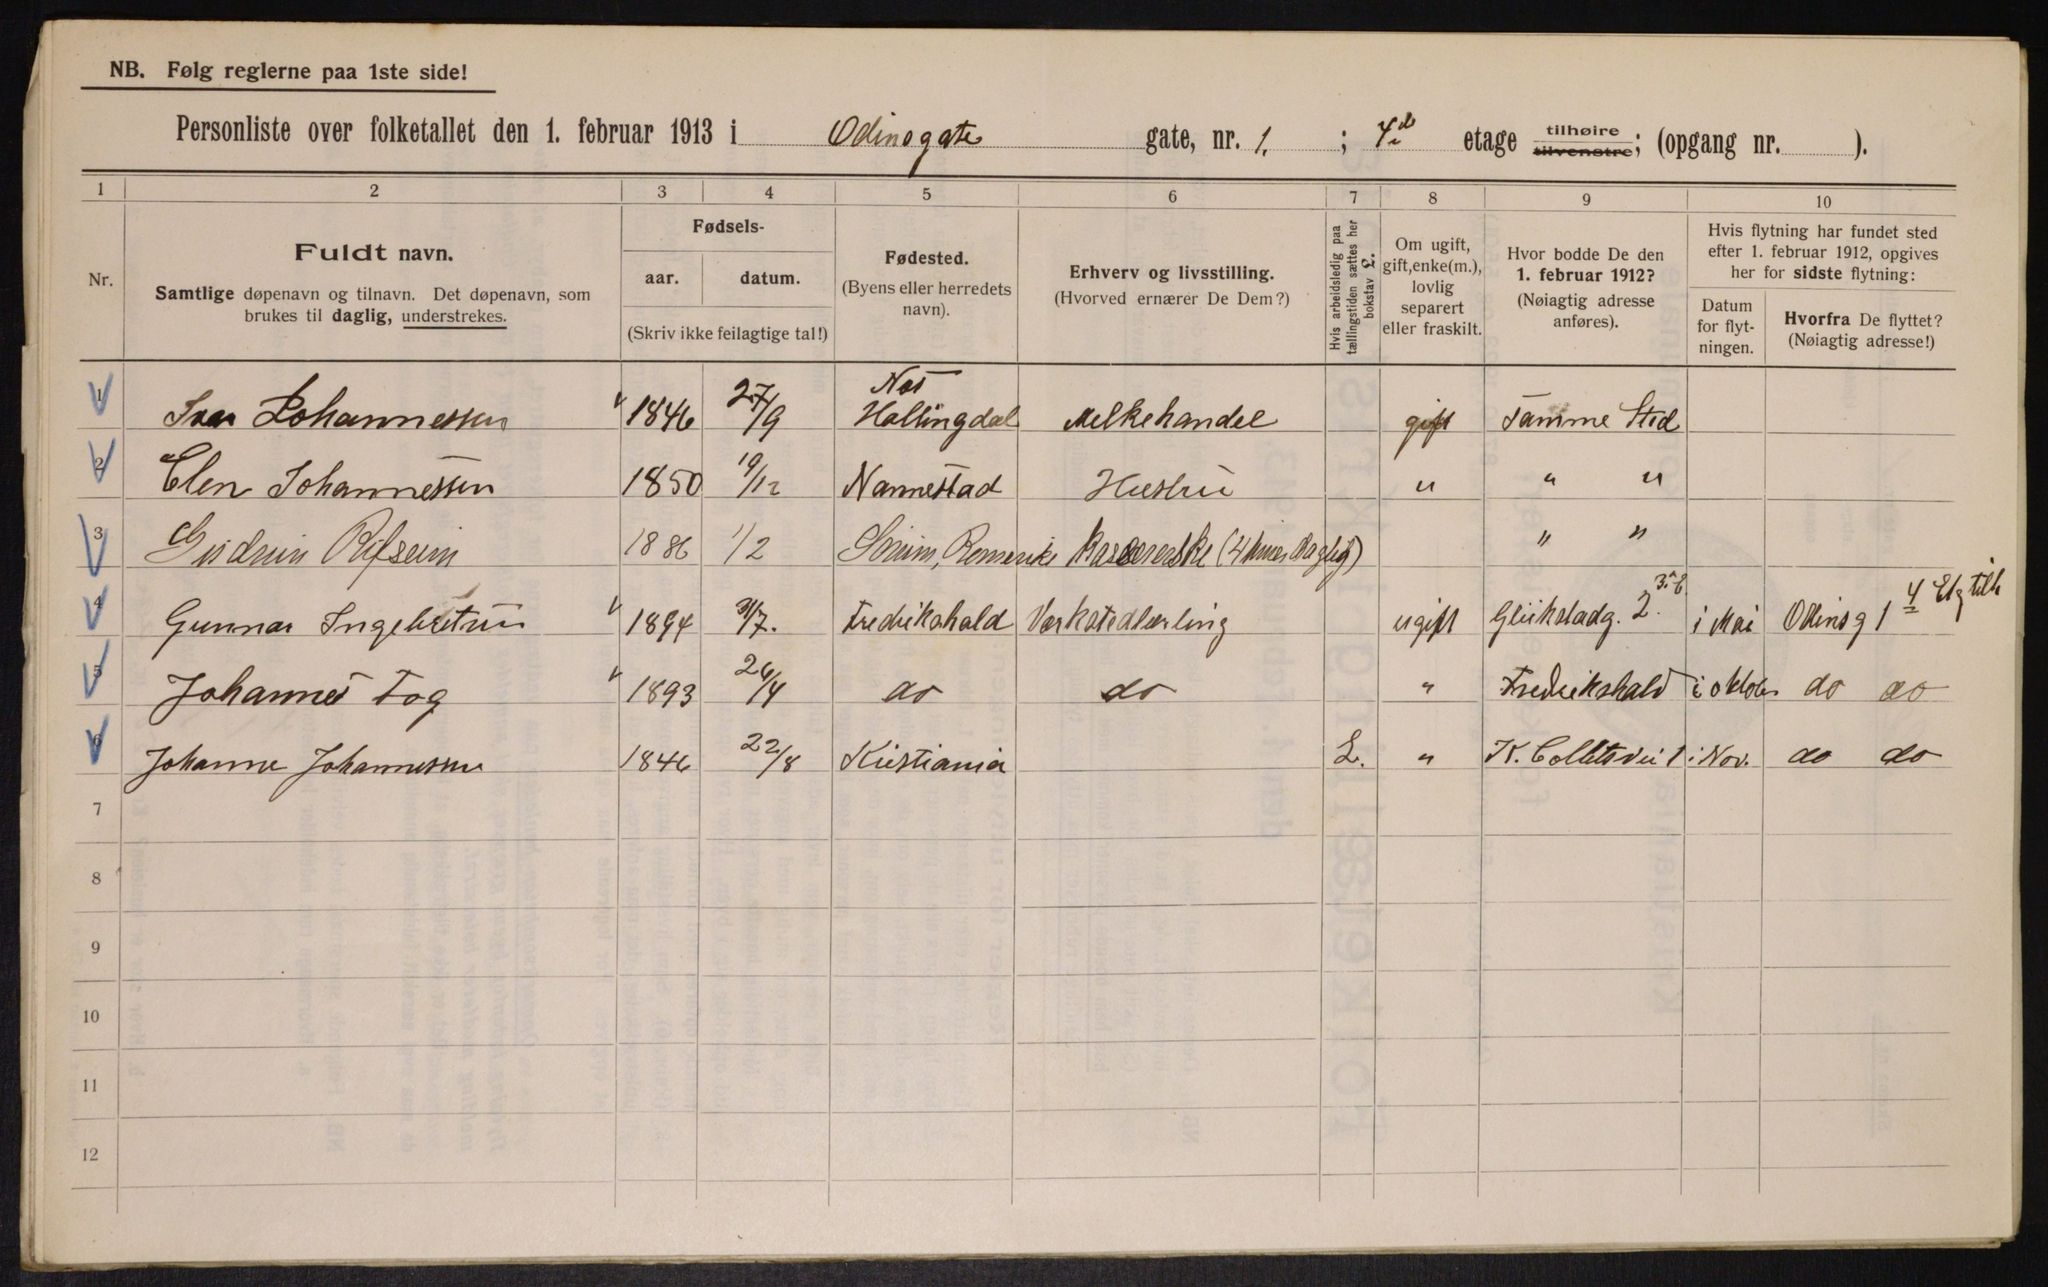 NB. Følg reglerne paa 1ste side!
Personliste over folketallet den 1. februar 1913 i Odinsgate gate, nr. 1. ; 4de etage tilhøire tilvenstre; (opgang nr. ).
1 2 3 4 5 6 7 8 9 10
Nr.
Fuldt navn.
Samtlige døpenavn og tilnavn. Det døpenavn, som
brukes til daglig, understrekes.
Fødsels-
aar. datum.
(Skriv ikke feilagtige tal!)
Fødested.
(Byens eller herredets
navn).
Erhverv og livsstilling.
(Hvorved ernærer De Dem?)
Hvis arbeidsledig paa
tællingstiden sættes her
bokstav L.
Om ugift,
gift, enke(m.),
lovlig
separert
eller fraskilt.
Hvor bodde De den
1. februar 1912?
(Nøiagtig adresse
anføres).
Hvis flytning har fundet sted
efter 1. februar 1912, opgives
her for sidste flytning:
Datum
for flyt-
ningen.
Hvorfra De flyttet?
(Nøiagtig adresse!)
1 Ivar Johannessen 1846 27/9 Nes Hallingdal Melkehandel gift Samme Sted
2 Elen Johannessen 1850 19/12 Nannestad Hustru " " "
3 Gudrun 1886 1/2 Sørum, Romerike Kassererske (4 timer Daglig) " "
4 Gunnar Ingebretsen 1894 31/7. Fredrikshald Værkstedlærling ugift Glückstadg. 2. i Mai Odinsg 1 4 Etg tilh
5 Johannes Fog 1893 26/4 do do " Fredrikshald i oktober do do
6 Johanne Johannessen 1846 22/8 Kristiania L. " K. Colletsvei 1 i Nov. do do
7
8
9
10
11
12